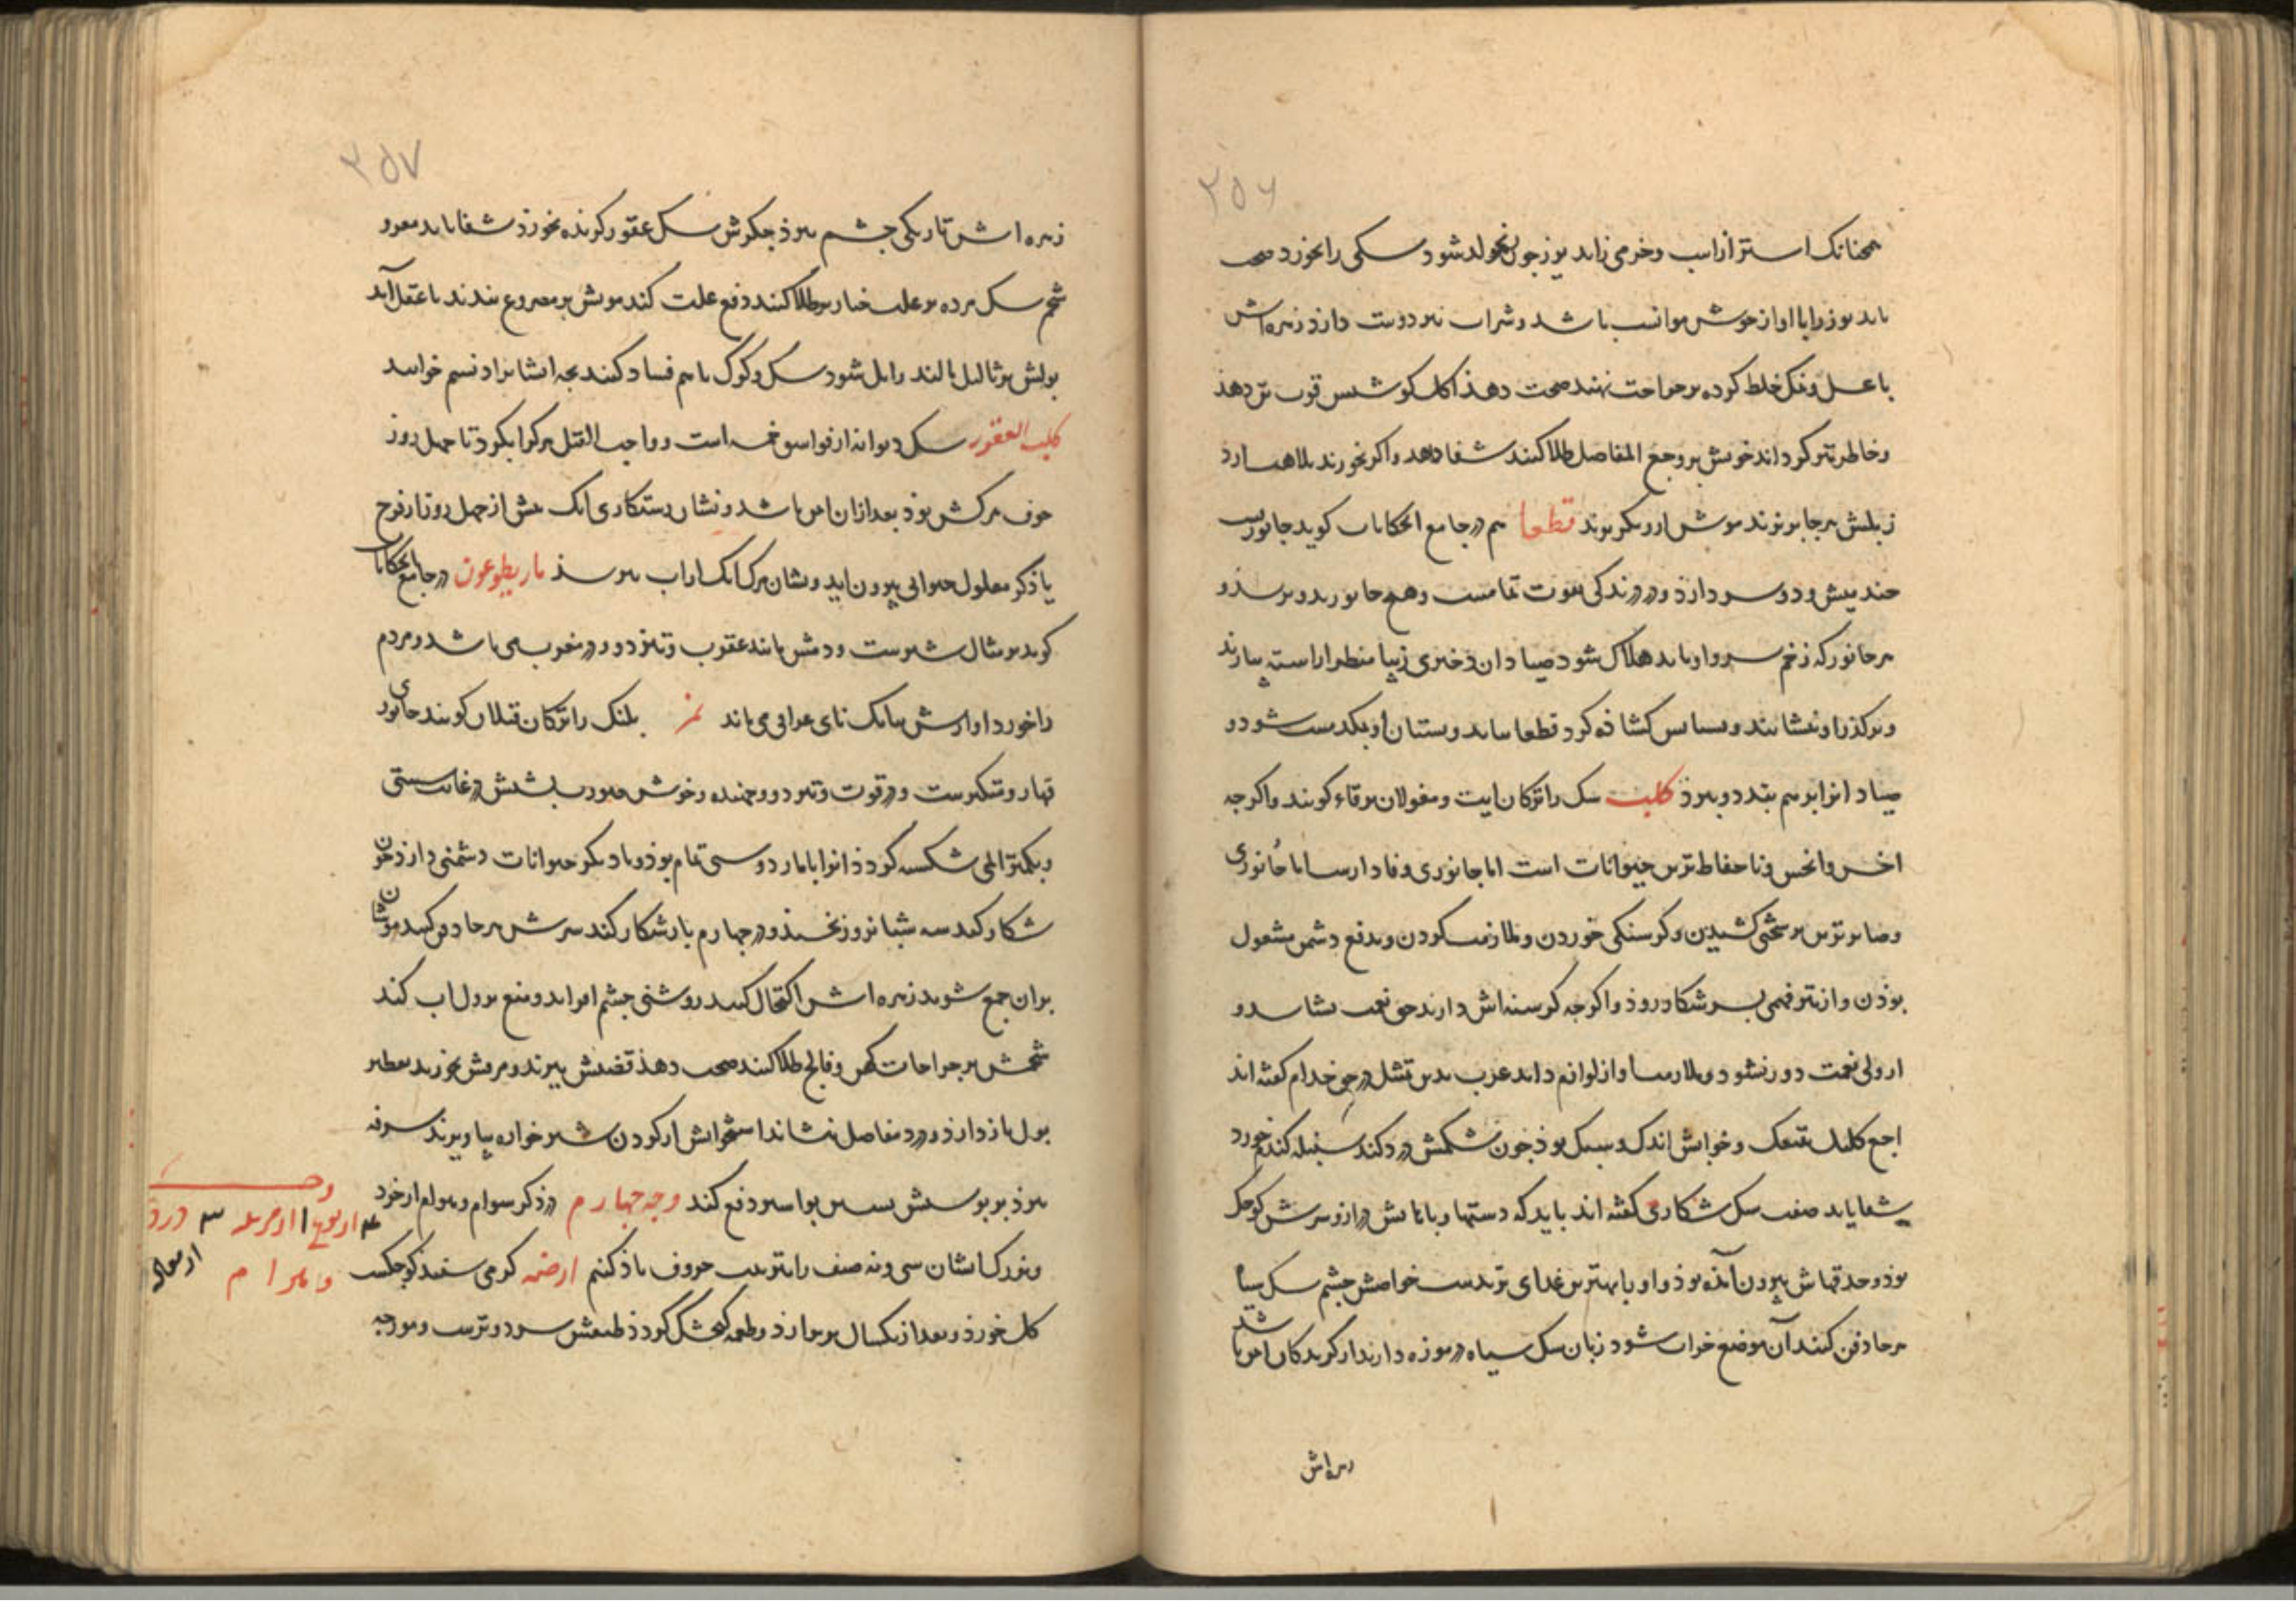 ۲۵۶
همچنانک استر از اسب و خر می زاید یوز چون رنجور شود سکی را بخورد صحت
یابد یوز را با اواز خوش موانست باشد و شراب نیز دوست دارد زهره اش
با عسل و نمک خلط کرده بر جراحت نهند صحت دهذ اکل کوشتش قوت تن دهذ
و خاطر تیز کرداند خونش بر وجع المفاصل طلا کنند شفا دهد و اکر بخورند
زبلش هر جا بر نوند موش ازو بکریزند قطعا هم در جامع الحکایات کوید جانوریست
چند میش و دو سر دارذ و در درندکی بغوت تمامست و همه جانور بدو ترسذ و
هر جانور که زخم سرو او یابد هلاک شود صیادان دختری زیبا منظر اراسته بیارند
و بر کذر او بنشانند و پستانش کشاذه کرد قطعا بیاید و پستان او بمکد مست شود و
صیاد انرا بر هم بندد و ببرد کلب سک را ترکان ایت و مغولان نوقاء کویند و اکرچه
اخس و انجس و نا حفاظ ترین حیوانات است اما جانوری وفادارست با جانوری
و صابرترین بر سختی کشیدن و کرسنکی خوردن و ملازمت کردن و بدفع دشمن مشغول
بوذن و از تیز فهمی بر سر شکار دروذ و اکرچه کرسنه اش دارند حق نعمت بشناسد و
از ولی نعمت دور نشود و ملازمت او از لوازم داند عرب بدین تمثل در حق خدام کفته اند
اجع کلبک یتبعک و خوابش اندک و سبک بوذ چون شکمش درد کند سنبله کندم خورد
شفا یابد صفت سک شکاری کفته اند باید که دستها و پایهایش دراز و سرش کوچک
بوذ و حدقهاش بیرون آمده بوذ و او را بهترین غذای تریدست خواصش چشم سک سیاه
هر جا دفن کنند آن موضع خراب شود زبان سک سیاه در موزه دارند از کزند سکان ایمن باشد
زهره اش
۲۵۷
زهره اش تاریکی چشم ببرد جکرش سک عقور کزنده بخورد شفا یابد
شحم سک مرده بر علت خنازیر طلا کنند دفع علت کند مویش بر مصروع بندند با عقل آید
بولش بر ثالیل مالند زایل شود سک و کرک با هم فساد کنند بچه ایشانرا دنسم خوانند
کلب العقور سک دیوانه از فواسق خمسه است و واجب القتل هر کرا بکزد تا چهل روز
خوف مرکش بوذ بعد ازان ایمن باشد و نشان رستکاری انک پیش از چهل روز از فرج
یا ذکر معلول حیوانی بیرون اید و نشان مرک انک از اب بترسذ ماریطوعون در جامع الحکایات
کوید بر مثال شیرست و دمش مانند عقرب و تیز دود و در مغرب می باشد و مردم
را خورد اوازش ببانک نای عراقی می ماند نمر پلنک را ترکان قبلان کویند جانور
قهار و متکبرست و در قوت و تیز دو و جهنده و خوش صورت پشتش در غایت سستی
و بکمتر المی شکسته کردذ انرا با مار دوستی تمام بوذ و با دیکر حیوانات دشمنی دارذ چون
شکار کند سه شبانروز نخسبد و در چهارم باز شکار کند سرش هر جا دفن کنند موشان
بران جمع شوند زهره اش اکتحال کنند روشنی چشم افزاید و منع نزول اب کند
شحمش بر جراحات کهن و فالج طلا کنند صحت دهذ قضیبش بپزند و مرقش بخورند تقطیر
بول باز دارد و درد مفاصل بنشاند استخوانش از کردن شیر خواره بیاویزند سرفه
ببرد بر پوستش نشستن بواسیر دفع کند وجه چهارم در ذکر سوام و هوام از خرد
و بزرک ایشان سی و نه صنف را بترتیب حروف یاذ کنیم ارضه کرمی سفید کوچکست
کل خورذ و بعد از یکسال پر برارد و طعمه کنجشک کردذ طبعش سرد و ترست و مورچه